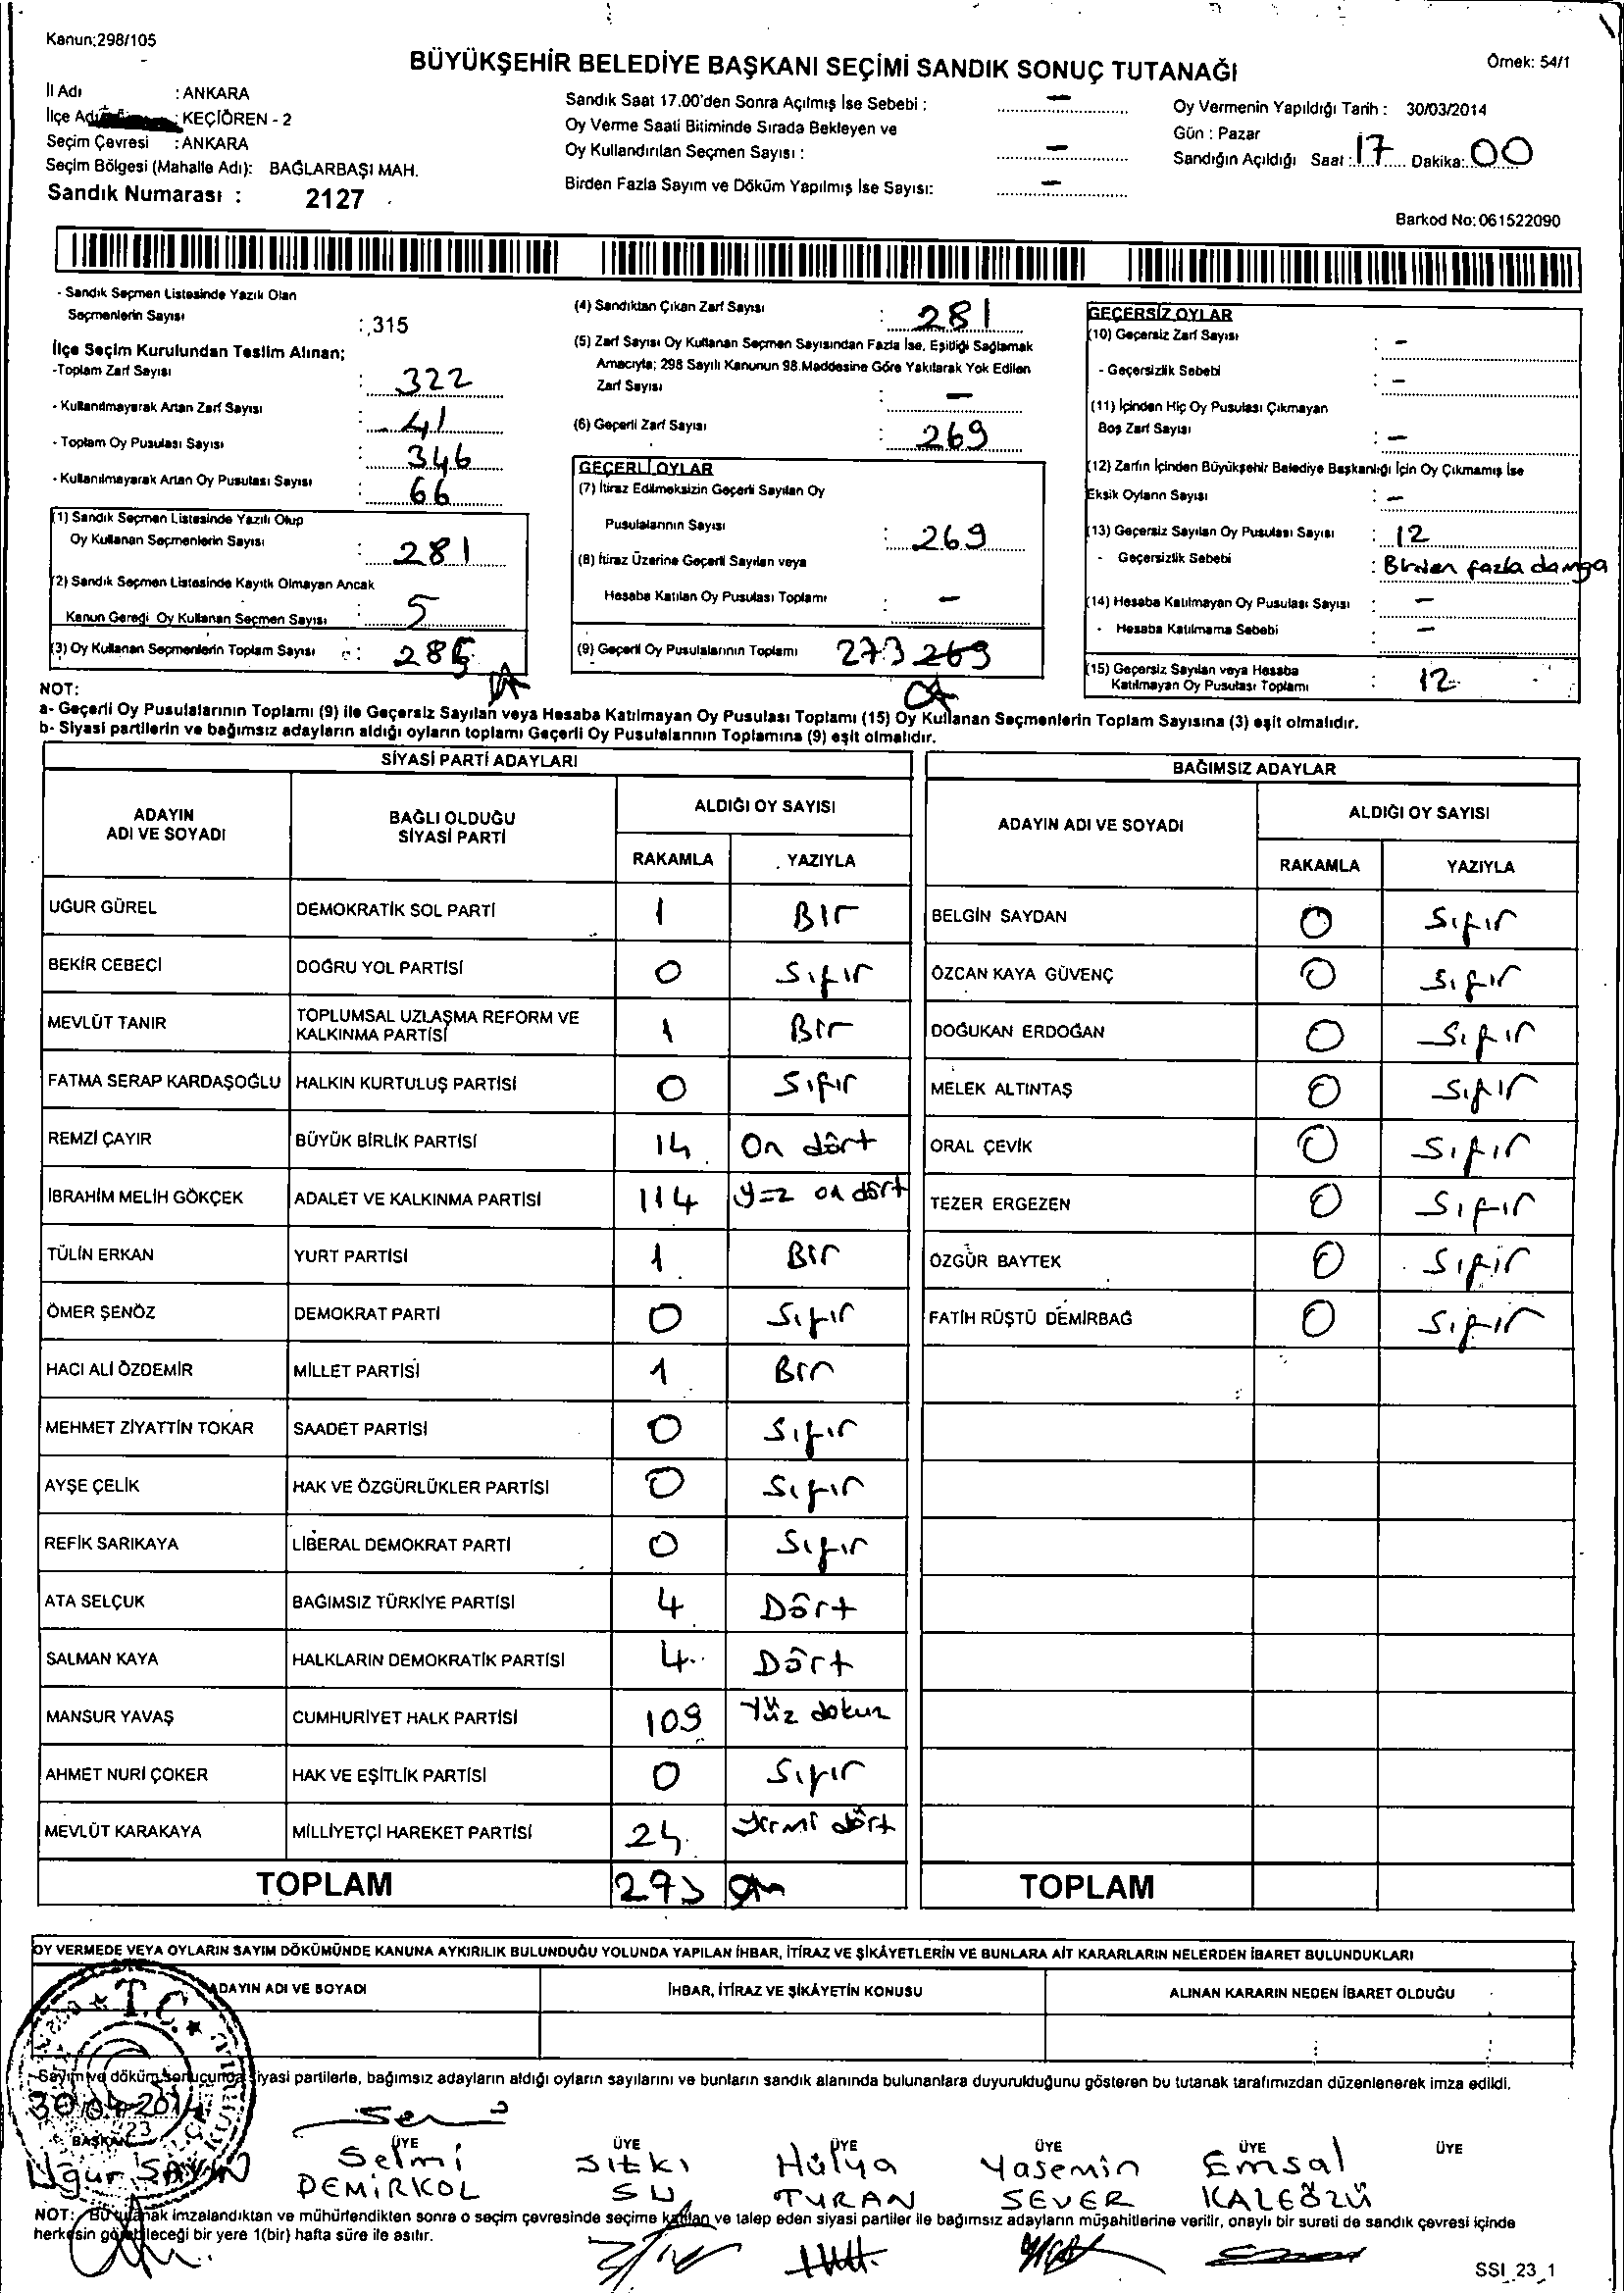 Kanun:298/105
BÜYÜKŞEHİR BELEDİYE BAŞKANI SEÇİMİ SANDIK SONUÇ TUTANAĞI
Örnek: 54/1
İl Adı : ANKARA
İlçe Adı : KEÇİÖREN - 2
Seçim Çevresi : ANKARA
Seçim Bölgesi (Mahalle Adı): BAĞLARBAŞI MAH.
Sandık Numarası : 2127
Sandık Saat 17.00'den Sonra Açılmış İse Sebebi : –
Oy Verme Saati Bitiminde Sırada Bekleyen ve
Oy Kullandırılan Seçmen Sayısı : –
Birden Fazla Sayım ve Döküm Yapılmış İse Sayısı: –
Oy Vermenin Yapıldığı Tarih : 30/03/2014
Gün : Pazar
Sandığın Açıldığı Saat : 17 Dakika: 00
Barkod No: 061522090
- Sandık Seçmen Listesinde Yazılı Olan
Seçmenlerin Sayısı : 315
İlçe Seçim Kurulundan Teslim Alınan;
-Toplam Zarf Sayısı : 322
- Kullanılmayarak Artan Zarf Sayısı : 41
- Toplam Oy Pusulası Sayısı : 346
- Kullanılmayarak Artan Oy Pusulası Sayısı : 66
(1) Sandık Seçmen Listesinde Yazılı Olup
Oy Kullanan Seçmenlerin Sayısı : 281
(2) Sandık Seçmen Listesinde Kayıtlı Olmayan Ancak
Kanun Gereği Oy Kullanan Seçmen Sayısı : 5
(3) Oy Kullanan Seçmenlerin Toplam Sayısı :
(4) Sandıktan Çıkan Zarf Sayısı : 281
(5) Zarf Sayısı Oy Kullanan Seçmen Sayısından Fazla İse, Eşitliği Sağlamak
Amacıyla; 298 Sayılı Kanunun 98.Maddesine Göre Yakılarak Yok Edilen
Zarf Sayısı : –
(6) Geçerli Zarf Sayısı : 269
GEÇERLİ OYLAR
(7) İtiraz Edilmeksizin Geçerli Sayılan Oy
Pusulalarının Sayısı : 269
(8) İtiraz Üzerine Geçerli Sayılan veya
Hesaba Katılan Oy Pusulası Toplamı : –
(9) Geçerli Oy Pusulalarının Toplamı 273 269
GEÇERSİZ OYLAR
(10) Geçersiz Zarf Sayısı : –
- Geçersizlik Sebebi : –
(11) İçinden Hiç Oy Pusulası Çıkmayan
Boş Zarf Sayısı : –
(12) Zarfın İçinden Büyükşehir Belediye Başkanlığı İçin Oy Çıkmamış İse
Eksik Oyların Sayısı : –
(13) Geçersiz Sayılan Oy Pusulası Sayısı : 12
- Geçersizlik Sebebi : Birden fazla damga
(14) Hesaba Katılmayan Oy Pusulası Sayısı : –
- Hesaba Katılmama Sebebi : –
(15) Geçersiz Sayılan veya Hesaba
Katılmayan Oy Pusulası Toplamı : 12
NOT:
a- Geçerli Oy Pusulalarının Toplamı (9) ile Geçersiz Sayılan veya Hesaba Katılmayan Oy Pusulası Toplamı (15) Oy Kullanan Seçmenlerin Toplam Sayısına (3) eşit olmalıdır.
b- Siyasi partilerin ve bağımsız adayların aldığı oyların toplamı Geçerli Oy Pusulalarının Toplamına (9) eşit olmalıdır.
SİYASİ PARTİ ADAYLARI
ADAYIN ADI VE SOYADI BAĞLI OLDUĞU SİYASİ PARTİ ALDIĞI OY SAYISI
RAKAMLA YAZIYLA
UĞUR GÜREL DEMOKRATİK SOL PARTİ 1 Bir
BEKİR CEBECİ DOĞRU YOL PARTİSİ 0 Sıfır
MEVLÜT TANIR TOPLUMSAL UZLAŞMA REFORM VE KALKINMA PARTİSİ 1 Bir
FATMA SERAP KARDAŞOĞLU HALKIN KURTULUŞ PARTİSİ 0 Sıfır
REMZİ ÇAYIR BÜYÜK BİRLİK PARTİSİ 14 On dört
İBRAHİM MELİH GÖKÇEK ADALET VE KALKINMA PARTİSİ 114 yüz on dört
TÜLİN ERKAN YURT PARTİSİ 1 Bir
ÖMER ŞENÖZ DEMOKRAT PARTİ 0 Sıfır
HACI ALİ ÖZDEMİR MİLLET PARTİSİ 1 Bir
MEHMET ZİYATTİN TOKAR SAADET PARTİSİ 0 Sıfır
AYŞE ÇELİK HAK VE ÖZGÜRLÜKLER PARTİSİ 0 Sıfır
REFİK SARIKAYA LİBERAL DEMOKRAT PARTİ 0 Sıfır
ATA SELÇUK BAĞIMSIZ TÜRKİYE PARTİSİ 4 Dört
SALMAN KAYA HALKLARIN DEMOKRATİK PARTİSİ 4 Dört
MANSUR YAVAŞ CUMHURİYET HALK PARTİSİ 109 Yüz dokuz
AHMET NURİ ÇOKER HAK VE EŞİTLİK PARTİSİ 0 Sıfır
MEVLÜT KARAKAYA MİLLİYETÇİ HAREKET PARTİSİ 24 Yirmi dört
TOPLAM 273
BAĞIMSIZ ADAYLAR
ADAYIN ADI VE SOYADI ALDIĞI OY SAYISI
RAKAMLA YAZIYLA
BELGİN SAYDAN 0 Sıfır
ÖZCAN KAYA GÜVENÇ 0 Sıfır
DOĞUKAN ERDOĞAN 0 Sıfır
MELEK ALTINTAŞ 0 Sıfır
ORAL ÇEVİK 0 Sıfır
TEZER ERGEZEN 0 Sıfır
ÖZGÜR BAYTEK 0 Sıfır
FATİH RÜŞTÜ DEMİRBAĞ 0 Sıfır
TOPLAM
OY VERMEDE VEYA OYLARIN SAYIM DÖKÜMÜNDE KANUNA AYKIRILIK BULUNDUĞU YOLUNDA YAPILAN İHBAR, İTİRAZ VE ŞİKÂYETLERİN VE BUNLARA AİT KARARLARIN NELERDEN İBARET BULUNDUKLARI
ADAYIN ADI VE SOYADI İHBAR, İTİRAZ VE ŞİKÂYETİN KONUSU ALINAN KARARIN NEDEN İBARET OLDUĞU
T.C.
Sayım ve döküm sonucunda siyasi partilerle, bağımsız adayların aldığı oyların sayılarını ve bunların sandık alanında bulunanlara duyurulduğunu gösteren bu tutanak tarafımızdan düzenlenerek imza edildi.
BAŞKAN ÜYE ÜYE ÜYE ÜYE ÜYE ÜYE
Uğur SAYIN
Selmi DEMİRKOL
Sıtkı SU
Hülya TURAN
Yasemin SEVER
Emsal KALEÖZÜ
NOT: Bu tutanak imzalandıktan ve mühürlendikten sonra o seçim çevresinde seçime katılan ve talep eden siyasi partiler ile bağımsız adayların müşahitlerine verilir, onaylı bir sureti de sandık çevresi içinde
herkesin görebileceği bir yere 1(bir) hafta süre ile asılır.
SSI_23_1